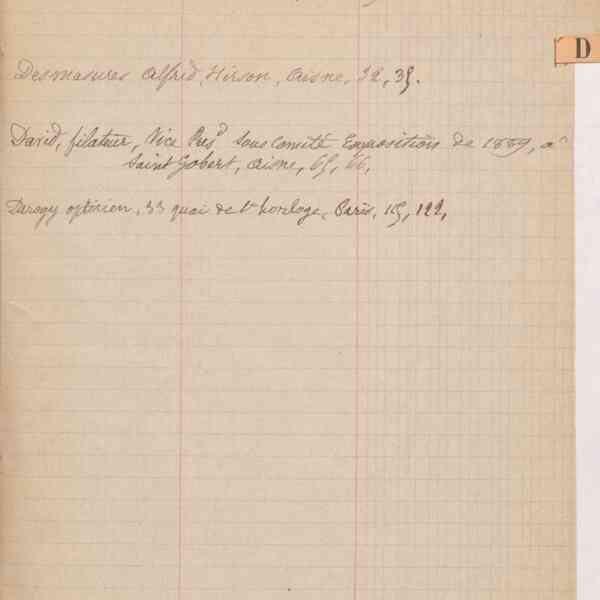 D
Desmasures Alfred, Hirson, Aisne, 32, 35.
David, filateur, Vice Pres^d Sous Comité Exposition de 1889, à
Saint Gobert, Aisne, 65, 66,
Darogy opticien, 33 quai de l'horloge, Paris, 115, 122,